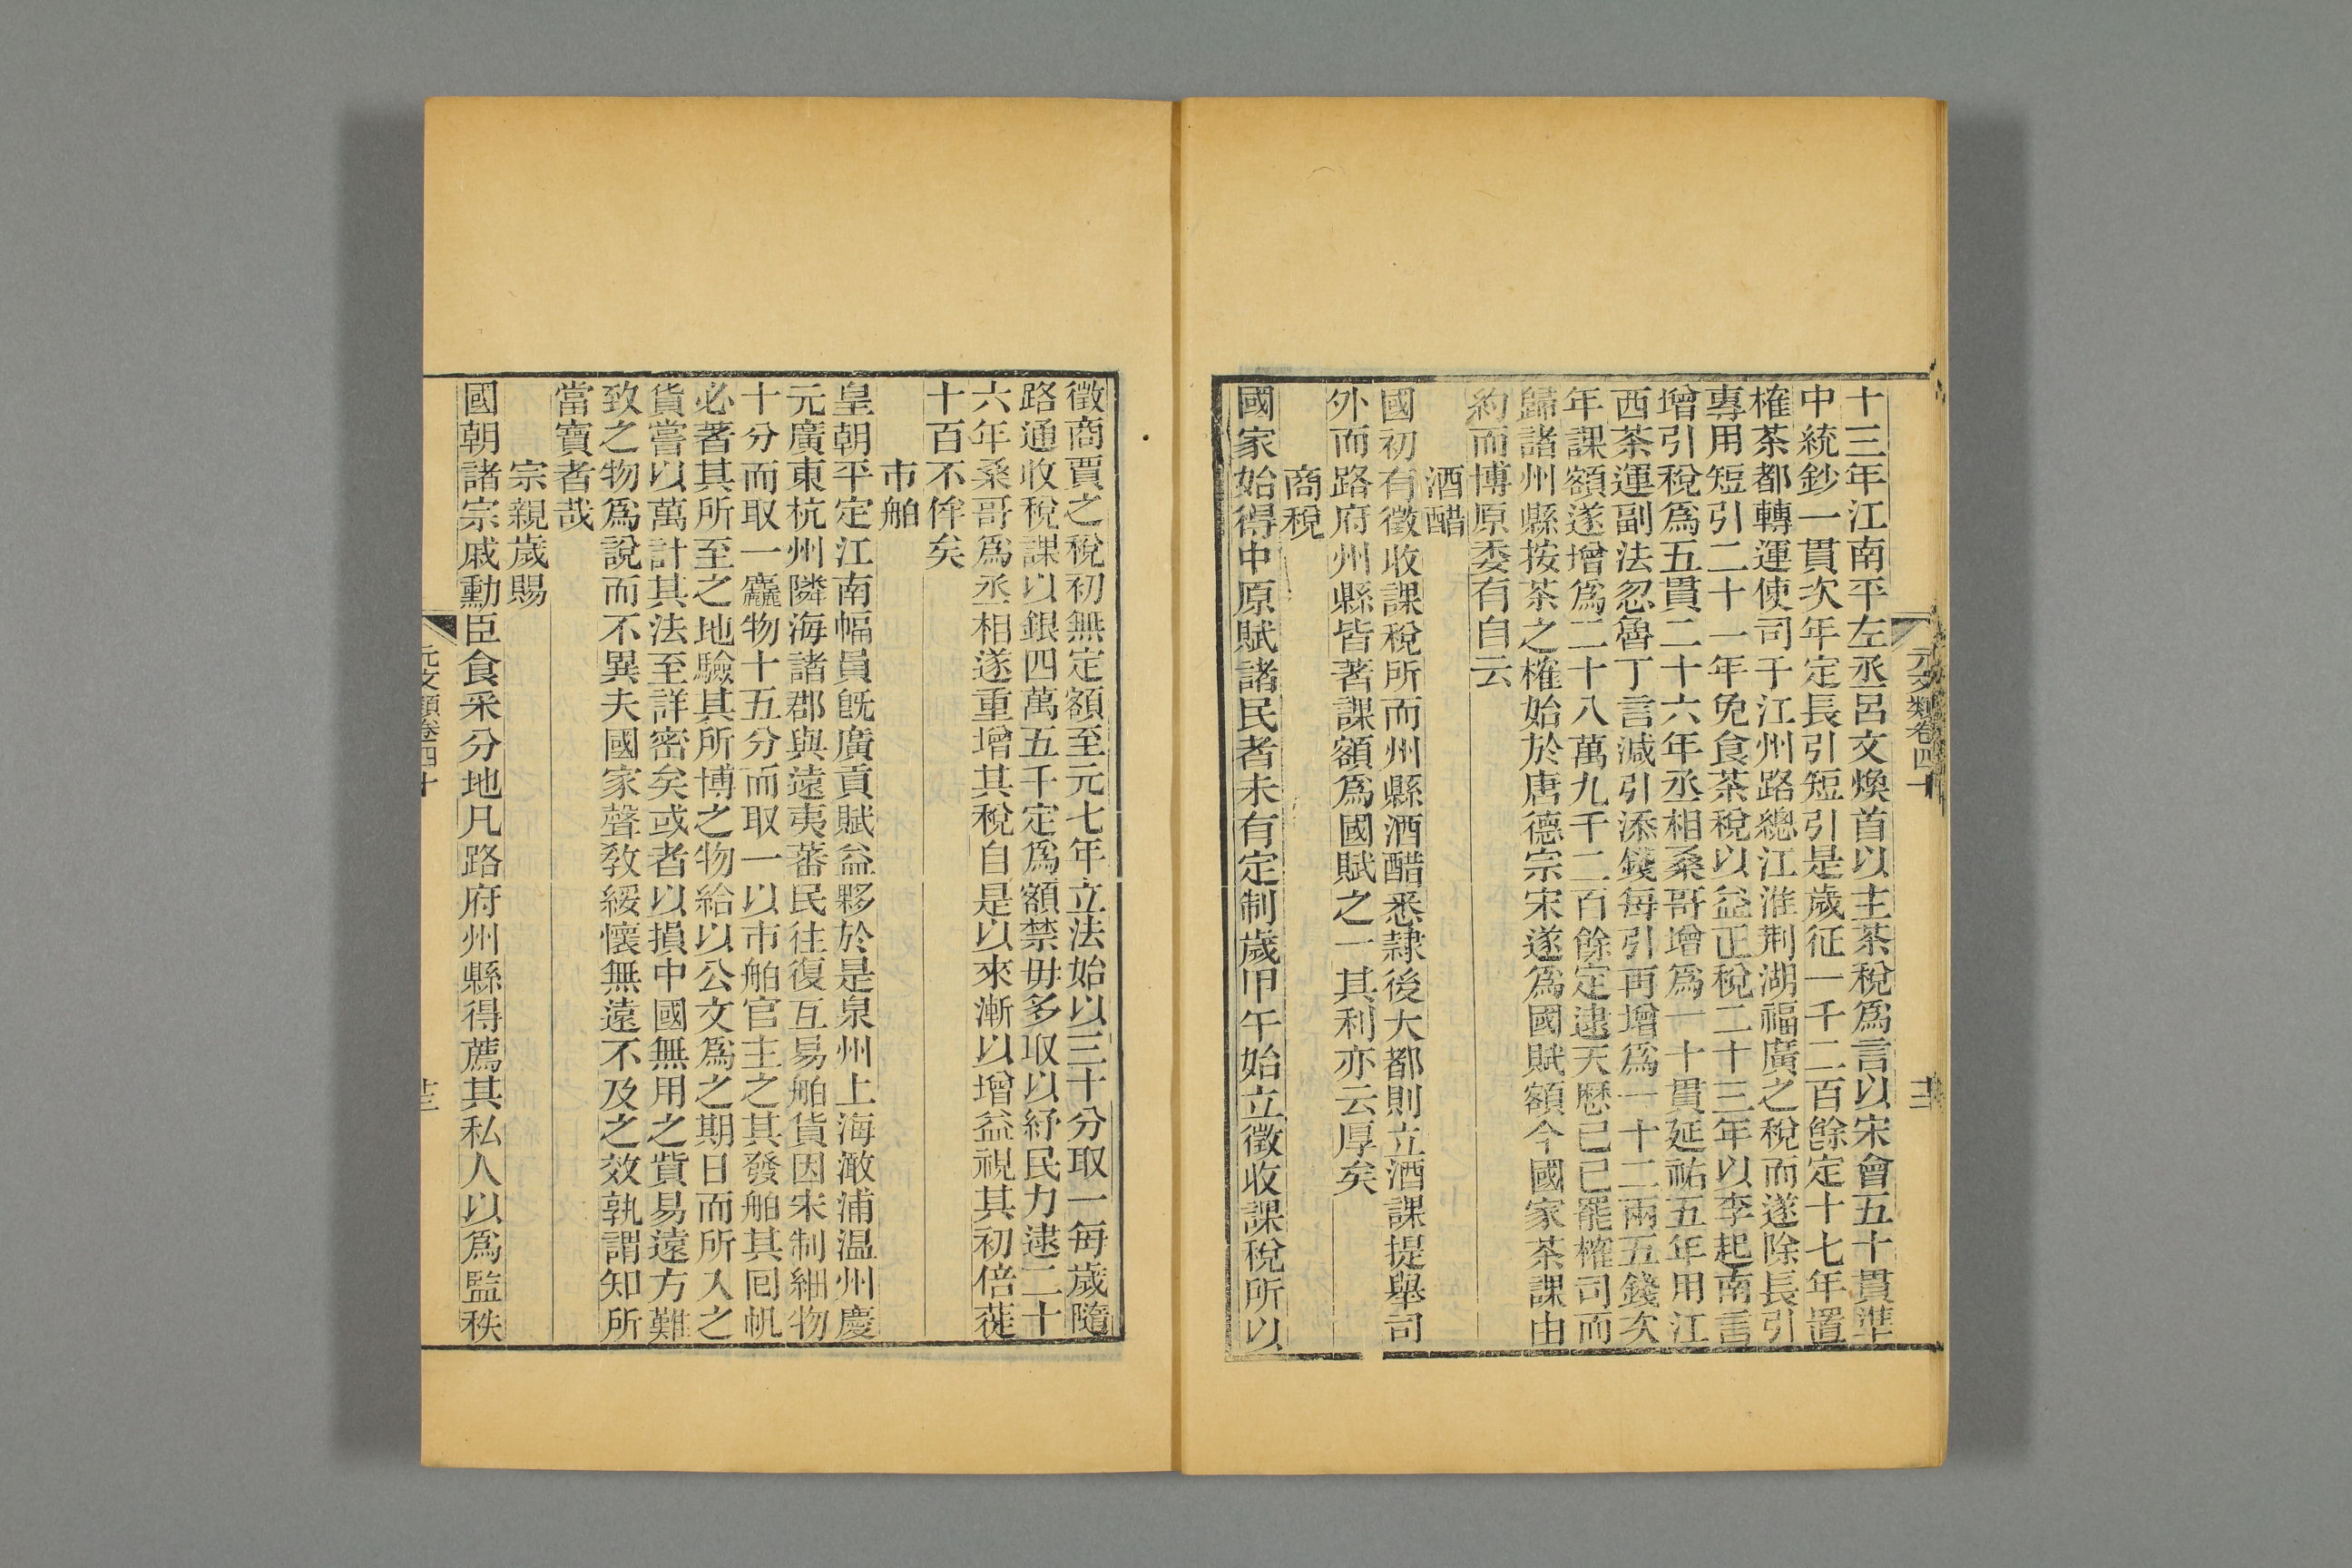 元文類卷四十
十三
十三年江南平左丞呂文煥首以主茶稅爲言以宋會五十貫準
中統鈔一貫次年定長引短引是歲征一千二百餘定十七年置
榷茶都轉運使司于江州路總江淮荆湖福廣之稅而遂除長引
專用短引二十一年免食茶稅以益正稅二十三年以李起南言
增引稅爲五貫二十六年丞相桑哥增爲一十貫延祐五年用江
西茶運副法忽魯丁言減引添錢每引再增爲一十二兩五錢次
年課額遂增爲二十八萬九千二百餘定逮天歷己巳罷榷司而
歸諸州縣按茶之榷始於唐德宗宋遂爲國賦額今國家茶課由
約而博原委有自云
酒醋
國初有徵收課稅所而州縣酒醋悉隷後大都則立酒課提舉司
外而路府州縣皆著課額爲國賦之一其利亦云厚矣
商稅
國家始得中原賦諸民者未有定制歲甲午始立徵收課稅所以
徵商賈之稅初無定額至元七年立法始以三十分取一每歲隨
路通收稅課以銀四萬五千定爲額禁毋多取以紓民力逮二十
六年桑哥爲丞相遂重增其稅自是以來漸以增益視其初倍蓰
十百不侔矣
市舶
皇朝平定江南幅員旣廣貢賦益夥於是泉州上海澉浦温州慶
元廣東杭州隣海諸郡與遠夷蕃民往復互易舶貨因宋制細物
十分而取一麤物十五分而取一以市舶官主之其發舶其囘帆
必著其所至之地驗其所博之物給以公文爲之期日而所入之
貨嘗以萬計其法至詳密矣或者以損中國無用之貲易遠方難
致之物爲說而不異夫國家聲敎綏懷無遠不及之效孰謂知所
當寶者哉
宗親歲賜
國朝諸宗戚勳臣食采分地凡路府州縣得薦其私人以爲監秩
元文類卷四十
十三